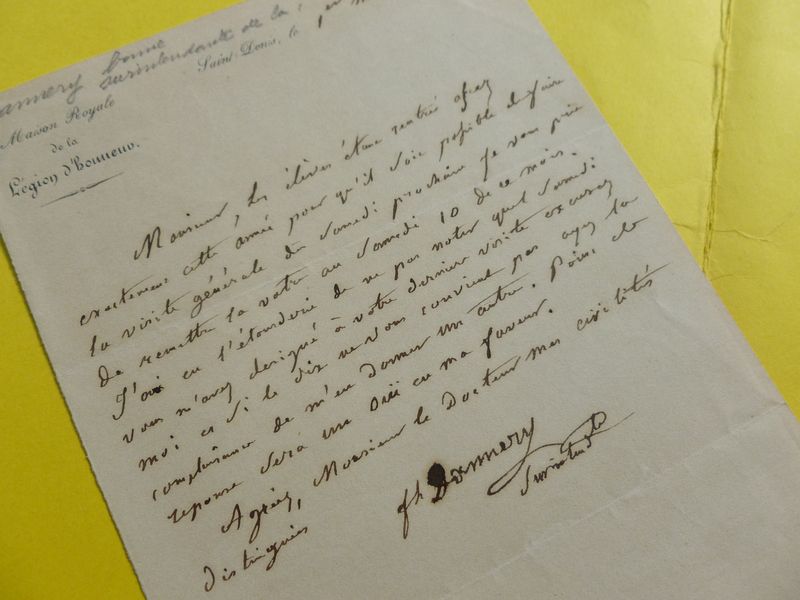 Dannery bonne
surintendante de la
Saint-Denis, le
Maison Royale
de la
Légion d'honneur.
Monsieur, les élèves étant rentrés assez
exactement cette année pour qu'il soit possible de faire
la visite générale du Samedi prochain je vous prie
de remettre la votre au Samedi 10 de ce mois.
J'ai eu l'étourderie de ne pas noter quel Samedi
vous m'avez designé à votre derniere visite excusez
moi et si le dix ne vous convient pas ayez la
complaisance de m'en donner un autre. Point de
reponse sera un oui en ma faveur.
Agréez, Monsieur le Docteur mes civilités
distinguées
Dannery
Surintend te